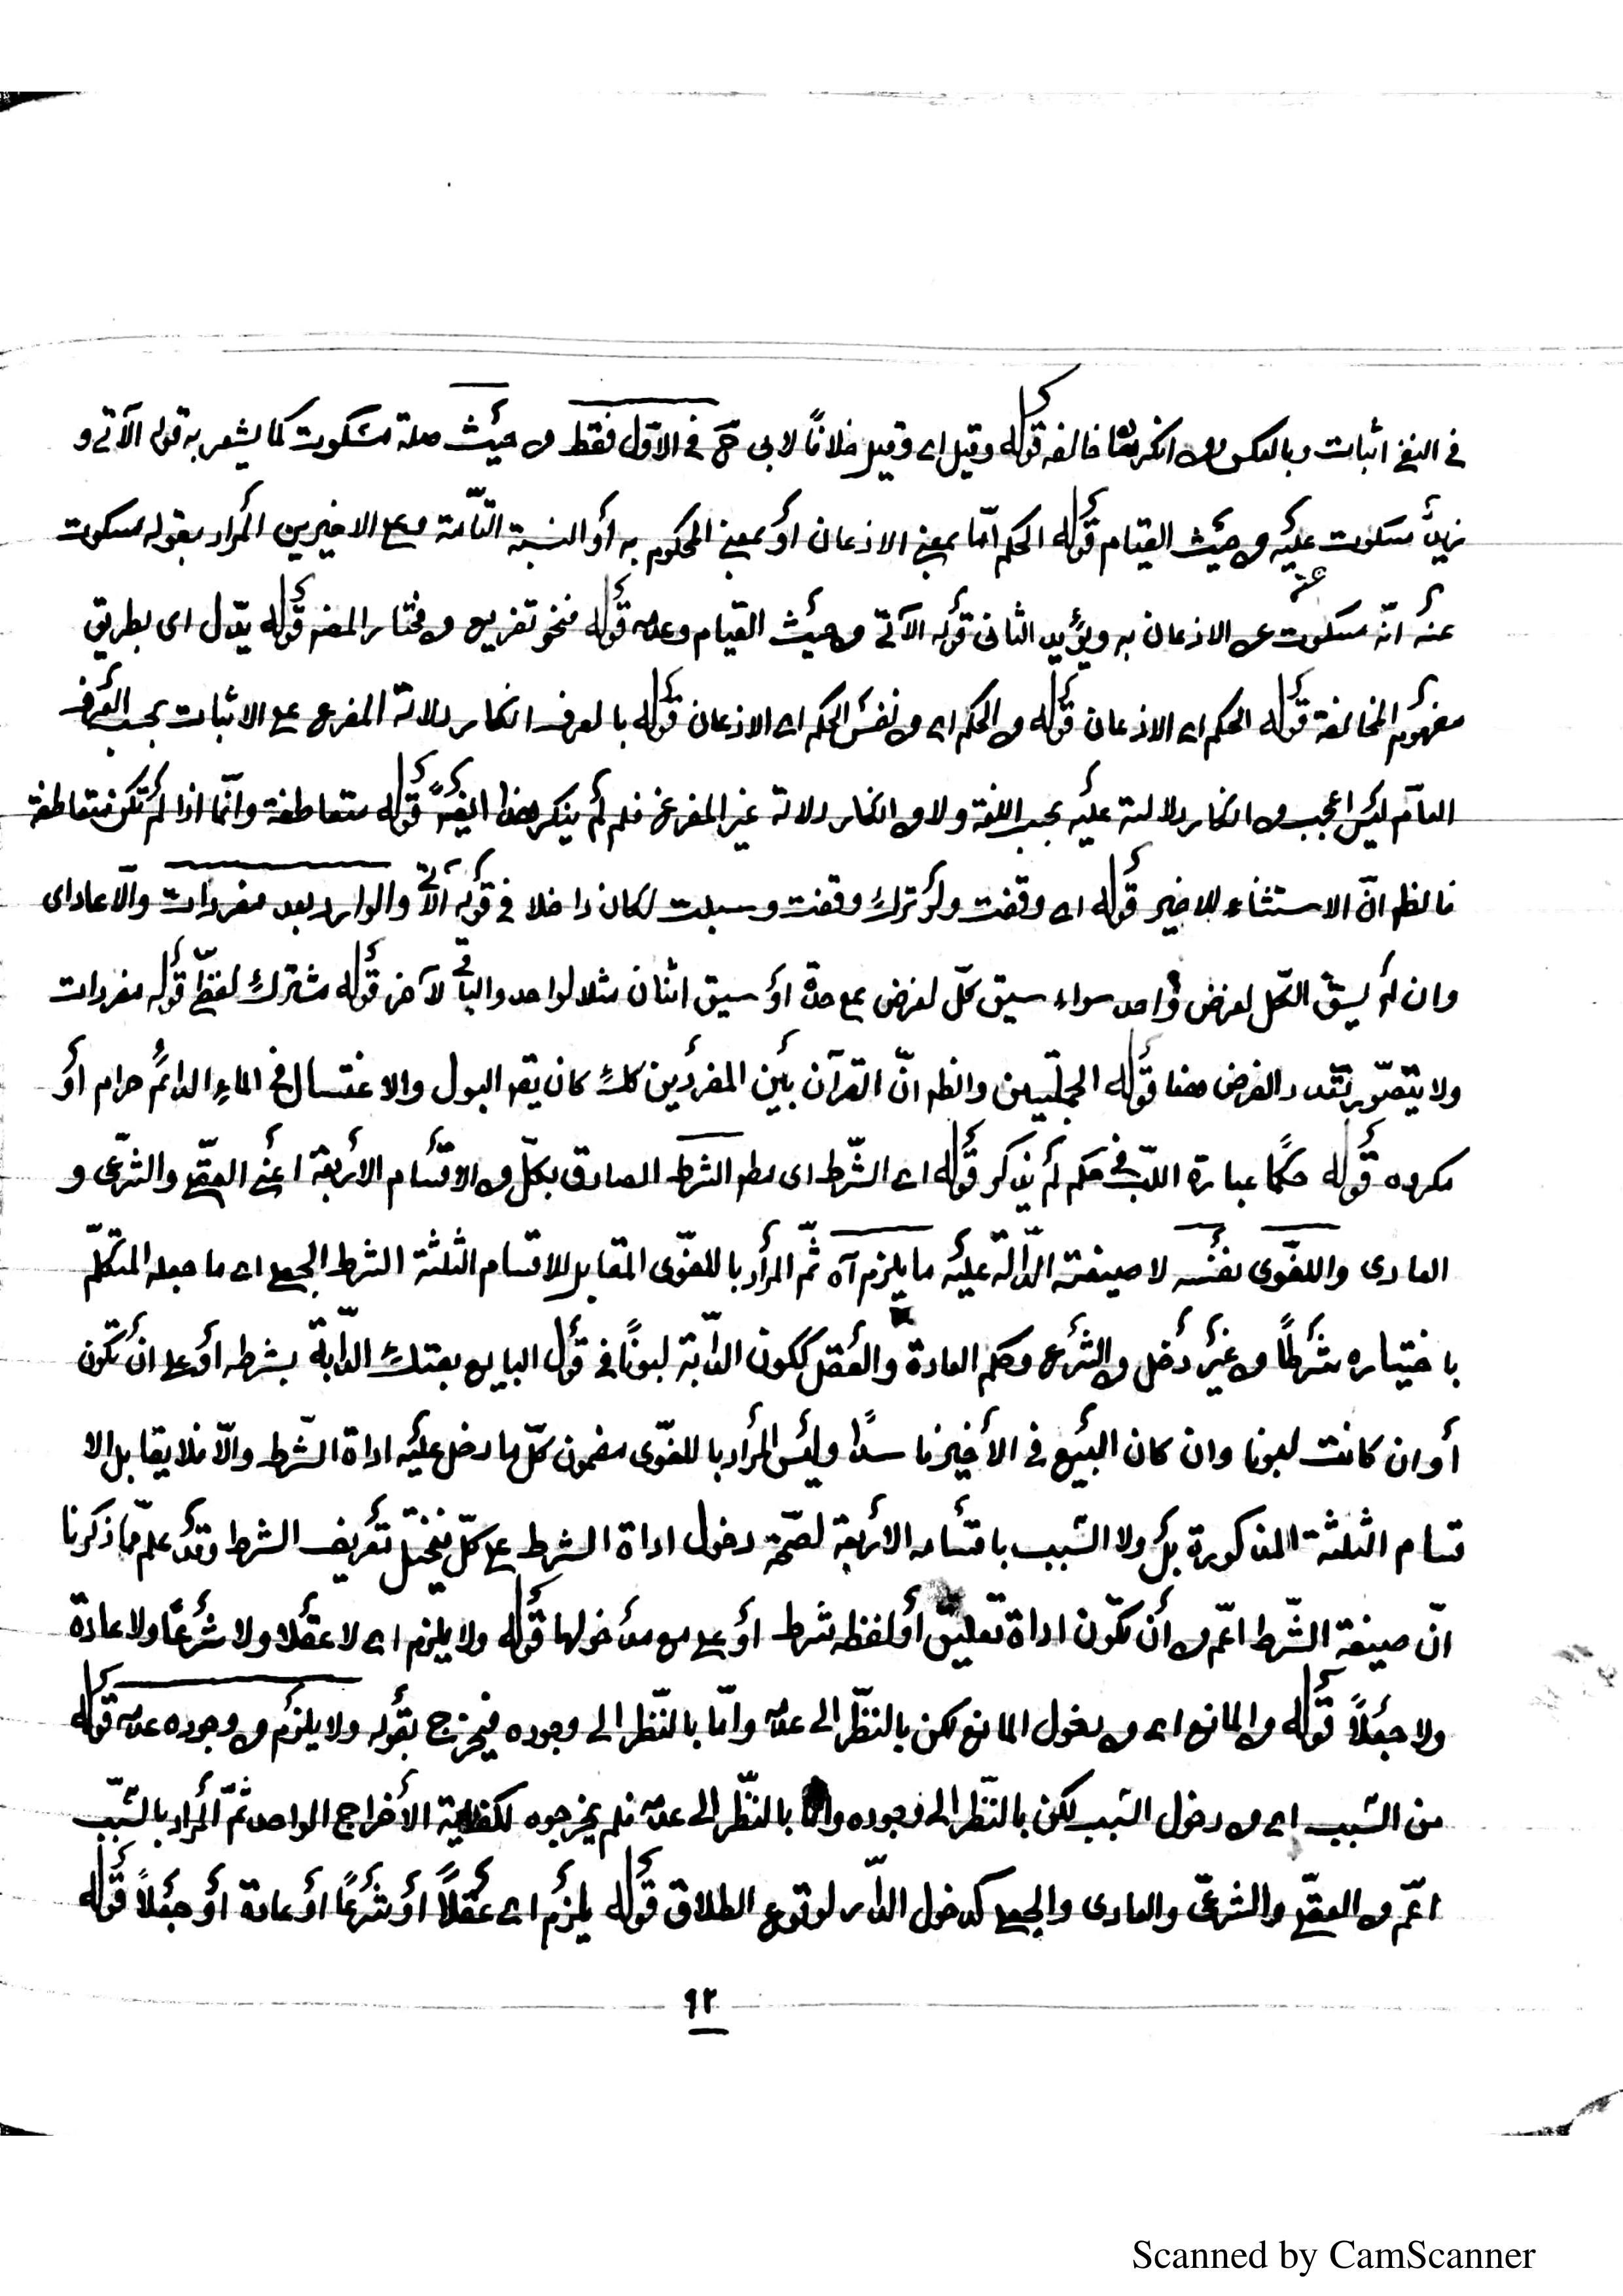 في النفي اثبات وبالعكس ومن انكرهما خالفه قوله وقيل اي وقيل خلافًا لابي ح في الاوّل فقط من حيث صلة مسكوت كما يشعر به قوله الآتي و
زيد مسكوت عليه من حيث القيام قوله الحكم امّا بمعنى الاذعان او بمعنى المحكوم به او النسبة التّامّة وعلى الاخيرين المراد بقوله مسكوت
عنه انّه مسكوت عن الاذعان به ويؤيد الثاني قوله الآتي من حيث القيام وعدمه قوله فنحو تفريع من مختار المصنف قوله يدّل اى بطريق
مفهوم المخالفة قوله الحكم اي الاذعان قوله من الحكم اي من نفس الحكم اي الاذعان قوله بالعرف انكار دلالة المفرغ على الاثبات بحسب العرف
العآم ليس اعجب من انكار دلالته عليه بحسب اللغة ولا من انكار دلالة غير المفرغ فلم لم ينكر هذا ايضًا قوله متعاطفة وامّا اذا لم تكن متعاطفة
فالظ انّ الاستثناء للاخير قوله اي وقفت ولو ترك وقفت وسبلت لكان داخلا في قوله الآتي والوارد بعد مفردات والّا عاد اى
وان لم يسق الكل لغرض واحد سواء سيق كلّ لغرض على حدة او سيق اثنان مثلا لواحد والباقي لآخر قوله مشترك لفظيّ قوله مفردات
ولا يتصوّر تعدد الغرض هنا قوله الجملتين والظ انّ القرآن بين المفردين كك كان يقم البول والاغتسال في الماء الدائم حرام او
مكروه قوله حكمًا عبارة اللبّ في حكم لم يذكر قوله اي الشّرط اى مطلق الشرط الصادق بكلّ من الاقسام الاربعة اعني العقلي والشرعى و
العادى واللغوى نفسه لا صيغته الدّالة عليه ما يلزم آه ثمّ المراد باللغوى المقابل للاقسام الثلثة الشرط الجعلي اي ما جعله المتكلّم
باختياره شرطًا من غير دخل من الشرع وحكم العادة والعقل ككون الدّابة لبونًا في قول البايع بعتك الدّابة بشرط او على ان تكون
أو ان كانت لبونا وان كان البيع في الأخير فاسدًا وليس المراد باللغوّى مضمون كلّ ما دخل عليه اداة الشّرط والّا فلا يقابل الا
قسام الثلثة المذكورة بل ولا السّبب باقسامه الاربعة لصحّة دخول اداة الشرط على كلّ فيختل تعريف الشرط وقد علم ممّا ذكرنا
انّ صيغة الشّرط اعّم من أن تكون اداة تعليق أو لفظ شرط او على مع مدخولها قوله ولا يلزم اي لا عقلًا ولا شرعًا ولا عادة
ولا جعلاً قوله من المانع اي من دخول المانع لكن بالنّظر الى عدمه وامّا بالنّظر الى وجوده فيخرج بقوله ولا يلزم من وجوده عدمه قوله
من السّبب اي من دخول السّبب لكن بالنّظر الى وجوده واما بالنّظر الى عدمه فلم يخرجوه لكفاية الاخراج الواحد ثمّ المراد بالسّبب
اعّم من العقلي والشرعيّ والعادى والجعلي كدخول الدّار لوقوع الطلاق قوله يلزم اي عقلاً او شرعًا او عادة او جعلاً قوله
٩٢
Scanned by CamScanner